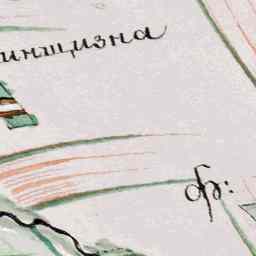 инщизна
ф: